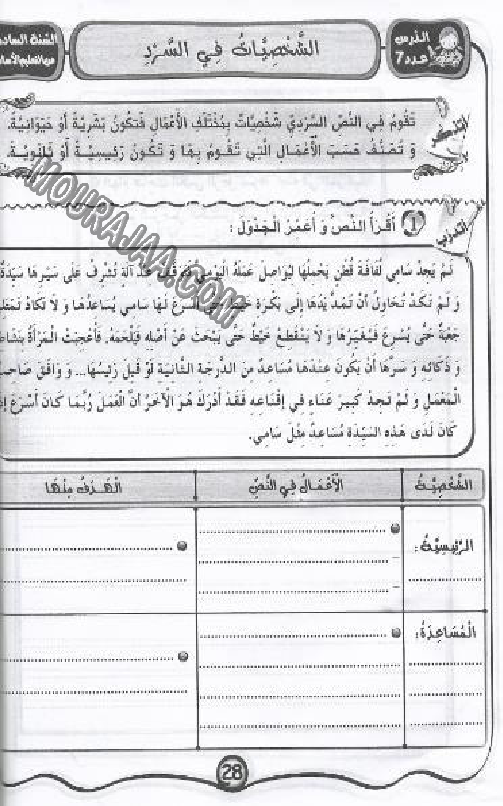 الدرس
عدد 7
الشَّخْصِيَّاتُ فِي السَّرْدِ
السّنة السّاد
من التعليم الأسا
تَقُومُ فِي النَّصِّ السَّرْدِيِّ شَخْصِيَّاتٌ بِمُخْتَلِفِ الْأَعْمَالِ فَتَكُونُ بَشَرِيَّةً أَوْ حَيَوَانِيَّةً.
وَ تُصَنَّفُ حَسَبَ الْأَعْمَالِ الَّتِي تَقُومُ بِهَا وَ تَكُونُ رَئِيسِيَّةً أَوْ ثَانَوِيَّةً.
1 أَقْرَأُ النَّصَّ وَ أُعَمِّرُ الْجَدْوَلَ :
لَمْ يَجِدْ سَامِي لُفَافَةَ قُطْنٍ يَحْمِلُهَا لِيُوَاصِلَ عَمَلَهُ الْيَوْمِيَّ فَوَقَفَ عِنْدَ آلَةٍ تُشْرِفُ عَلَى سَيْرِهَا سَيِّدَةٌ
وَ لَمْ تَكَدْ تُحَاوِلُ أَنْ تَمُدَّ يَدَهَا إِلَى بَكْرَةِ خَيْطٍ حَتَّى أَسْرَعَ لَهَا سَامِي يُسَاعِدُهَا وَ لَا تَكَادُ تَمْتَلِئُ
جَعْبَةٌ حَتَّى يُسْرِعَ فَيُغَيِّرَهَا وَ لَا يَنْقَطِعُ خَيْطٌ حَتَّى يَبْحَثَ عَنْ أَصْلِهِ وَيُلْحِمَهُ. فَأُعْجِبَتْ الْمَرْأَةُ بِنَشَاطِ
وَ ذَكَائِهِ وَ سَرَّهَا أَنْ يَكُونَ عِنْدَهَا مُسَاعِدٌ مِنَ الدَّرَجَةِ الثَّانِيَةِ لَوْ قَبِلَ رَئِيسُهَا... وَ وَافَقَ صَاحِبُ
الْمَعْمَلِ وَ لَمْ تَجِدْ كَبِيرَ عَنَاءٍ فِي إِقْنَاعِهِ فَقَدْ أَدْرَكَ هُوَ الْآخَرُ أَنَّ الْعَمَلَ رُبَّمَا كَانَ أَسْرَعَ إِذَا
كَانَ لَدَى هَذِهِ السَّيِّدَةِ مُسَاعِدٌ مِثْلُ سَامِي.
الشَّخْصِيَّةُ الْأَعْمَالُ فِي النَّصِّ الْهَدَفُ مِنْهَا
الرَّئِيسِيَّةُ:
الْمُسَاعِدَةُ:
28
MOURAJAA.COM